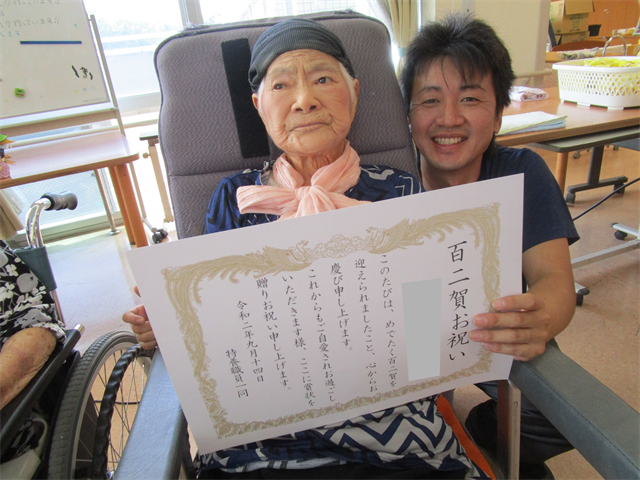 百二賀お祝い
このたびは、めでたく百二賀を
迎えられましたこと、心からお
慶び申し上げます。
これからもご自愛されお過ごし
いただきます様、ここに賞状を
贈りお祝い申し上げます。
令和二年九月十四日
特養職員一同